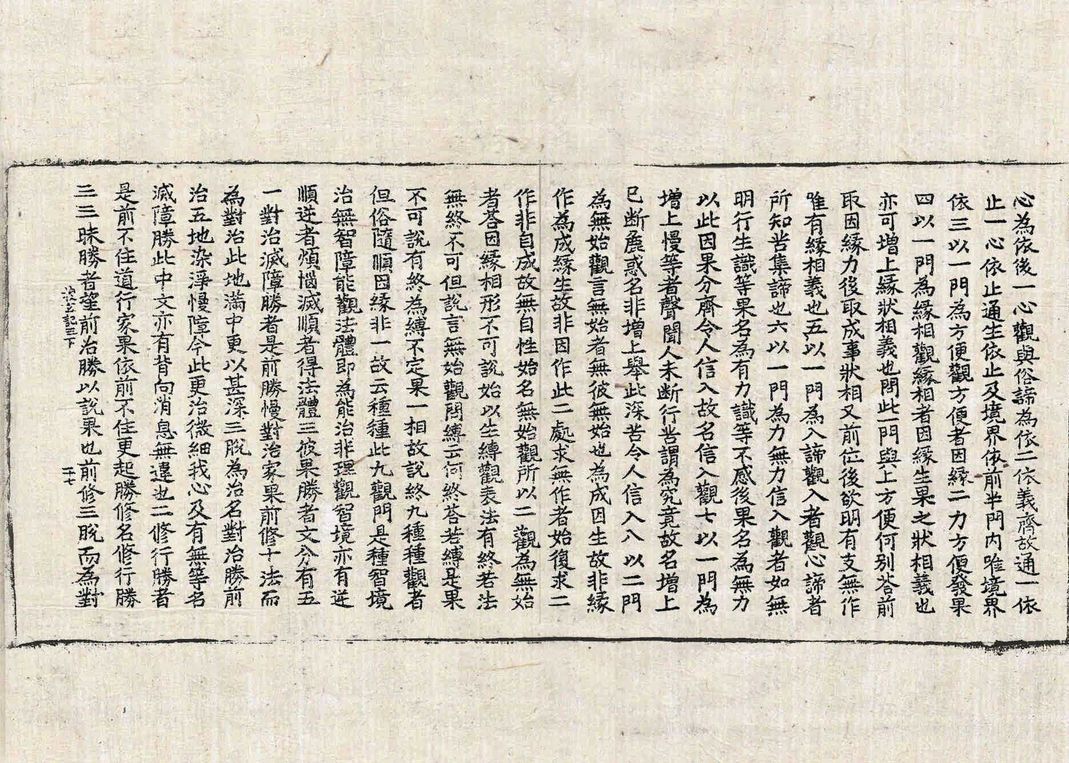 心為依後一心觀與俗諦為依二依義齊故通一依
止一心依止通生依止及境界依前半門內唯境界
依三以一門為方便觀方便者因緣二力方便發果
四以一門為緣相觀緣相者因緣生果之狀相義也
亦可增上緣狀相義也問此一門與上方便何別答前
取因緣力後取成事狀相又前位後欲明有支無作
唯有緣相義也五以一門為入諦觀入者觀心諦者
所知苦集諦也六以一門為力無力信入觀者如無
明行生識等果名為有力識等不感後果名為無力
以此因果分齊令人信入故名信入觀七以一門為
增上慢等者聲聞人未斷行苦謂為究竟故名增上
已斷麁惑名非增上舉此深苦令人信入八以二門
為無始觀言無始者無彼無始也為成因生故非緣
作為成緣生故非因作此二處求無作者始復求二
作非自成故無自性始名無始觀所以二觀為無始
者荅因緣相形不可說始以生縛觀表法有終若法
無終不可但說言無始觀問縛云何終荅若縛是果
不可說有終為縛不定果一相故說終九種種觀者
但俗隨順因緣非一故云種種此九觀門是種智境
治無智障能觀法體即為能治非理觀智境亦有逆
順逆者煩惱滅順者得法體三彼果勝者文分有五
一對治滅障勝者是前勝慢對治家果前修十法而
為對治此地滿中更以甚深三脫為治名對治勝前
治五地染淨慢障今此更治微細我心及有無等名
滅障勝此中文亦有背向消息無違也二修行勝者
是前不住道行家果依前不住更起勝修名修行勝
三三昧勝者望前治勝以說果也前修三脫而為對
記三下
二十七